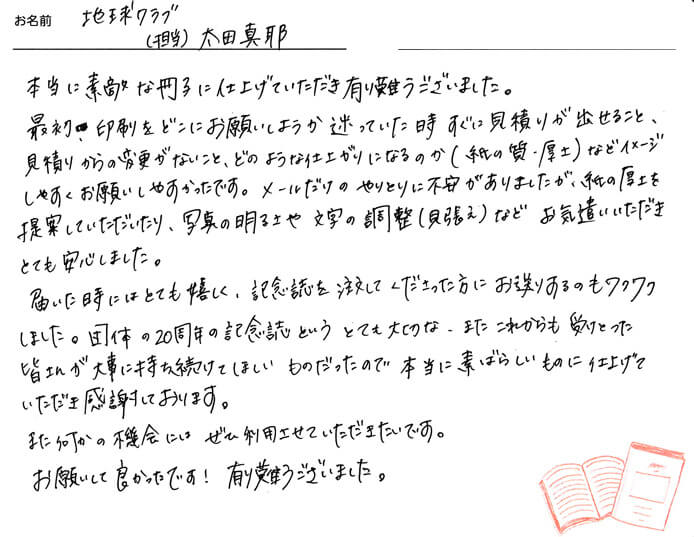 お名前 地球クラブ
(担当) 太田真耶
本当に素敵な冊子に仕上げていただき有り難うございました。
最初、印刷をどこにお願いしようか迷っていた時すぐに見積りが出せること、
見積りからの変更がないこと、どのような仕上がりになるのか(紙の質・厚さ)などイメージ
しやすくお願いしやすかったです。メールだけのやりとりに不安がありましたが、紙の厚さを
提案していただいたり、写真の明るさや文字の調整(見張え)など お気遣いいただき
とても安心しました。
届いた時にはとても嬉しく、記念誌を注文してくださった方にお送りするのもワクワク
しました。団体の20周年の記念誌という とても大切な、またこれからも受けとった
皆さんが大事に持ち続けてほしい ものだったので 本当に素ばらしいものに仕上げて
いただき感謝しております。
また何かの機会には ぜひ利用させていただきたいです。
お願いして良かったです! 有り難うございました。